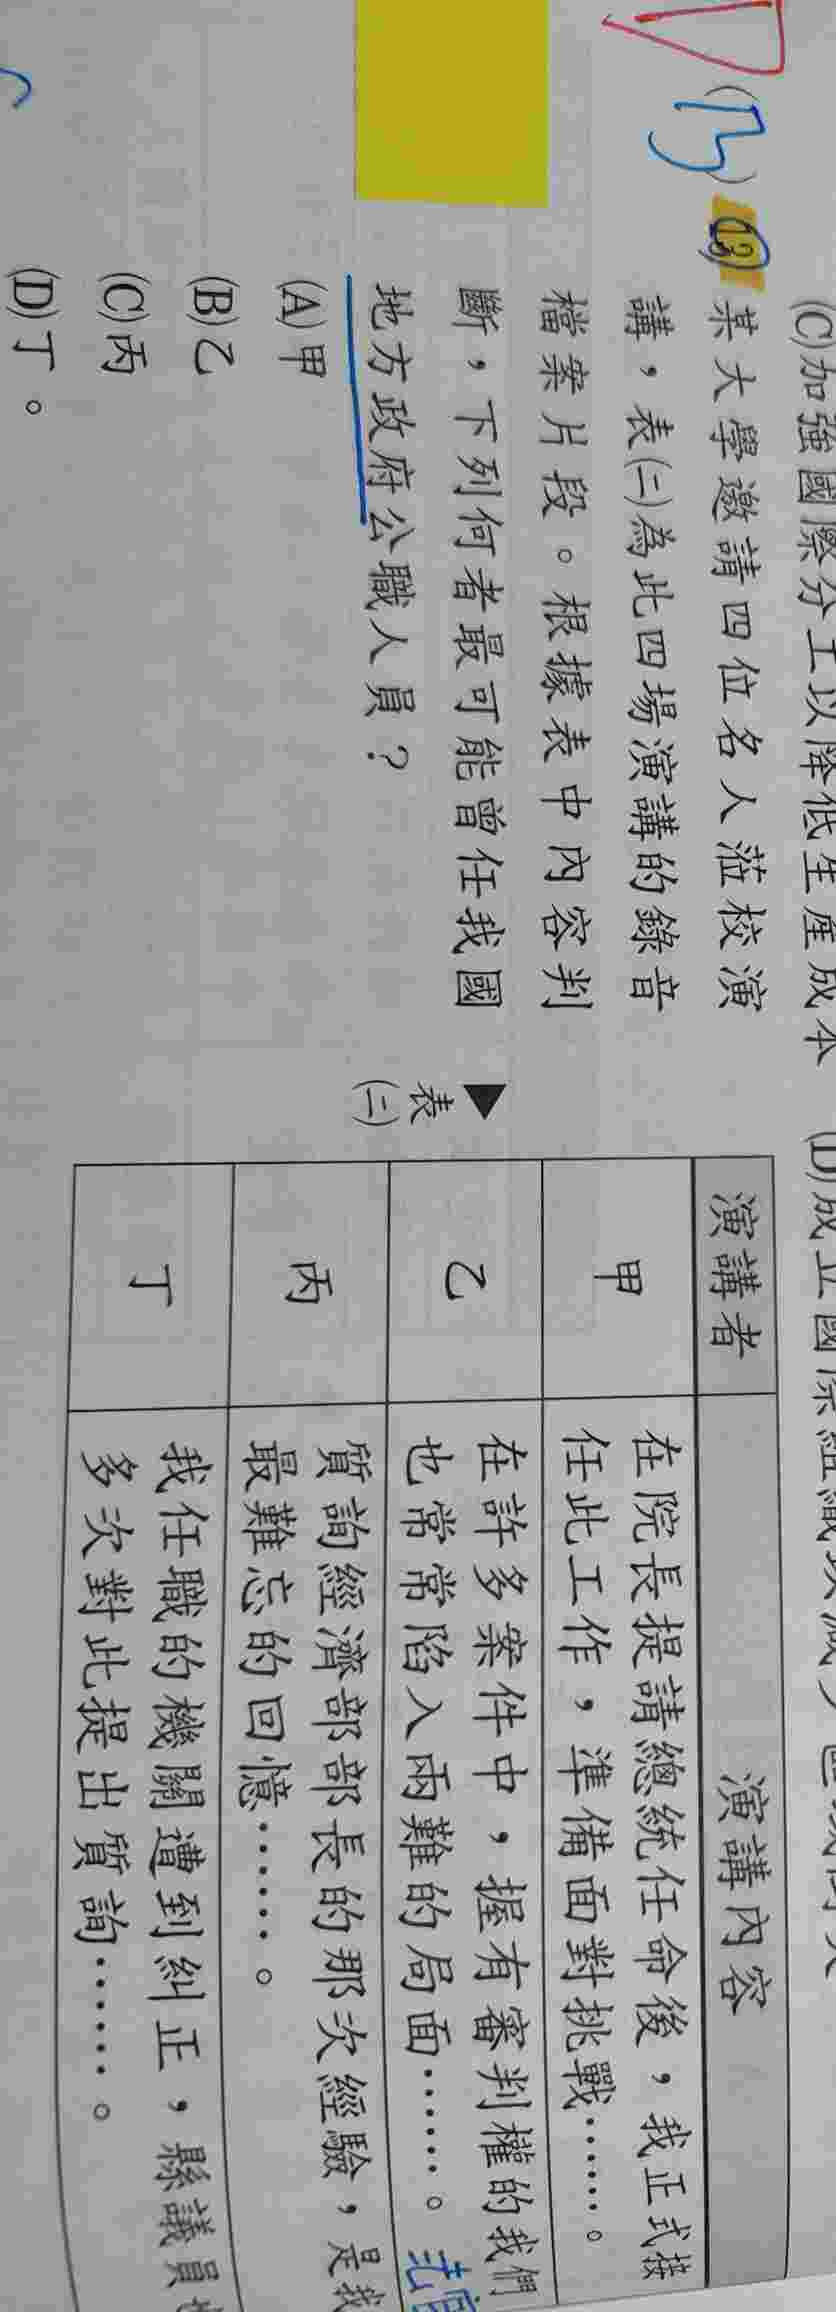 (C)加強國際分工以降低生產成本 (D)成立國際組織
(B) 13.
某大學邀請四位名人蒞校演
講，表(二)為此四場演講的錄音
檔案片段。根據表中內容判
斷，下列何者最可能曾任我國
地方政府公職人員？
(A)甲
(B)乙
(C)丙
(D)丁。
▲表(二)
演講者 演講內容
甲 在院長提請總統任命後，我正式接
任此工作，準備面對挑戰……。
乙 在許多案件中，握有審判權的我們
也常常陷入兩難的局面……。
丙 質詢經濟部部長的那次經驗，是我
最難忘的回憶……。
丁 我任職的機關遭到糾正，縣議員
多次對此提出質詢……。